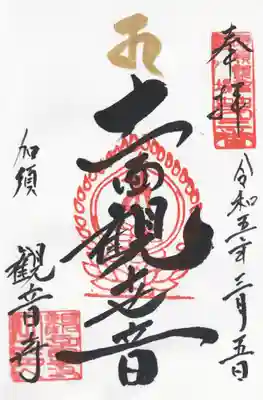 奉拝
令和五年三月五日
十一面觀世音
加須
観音寺